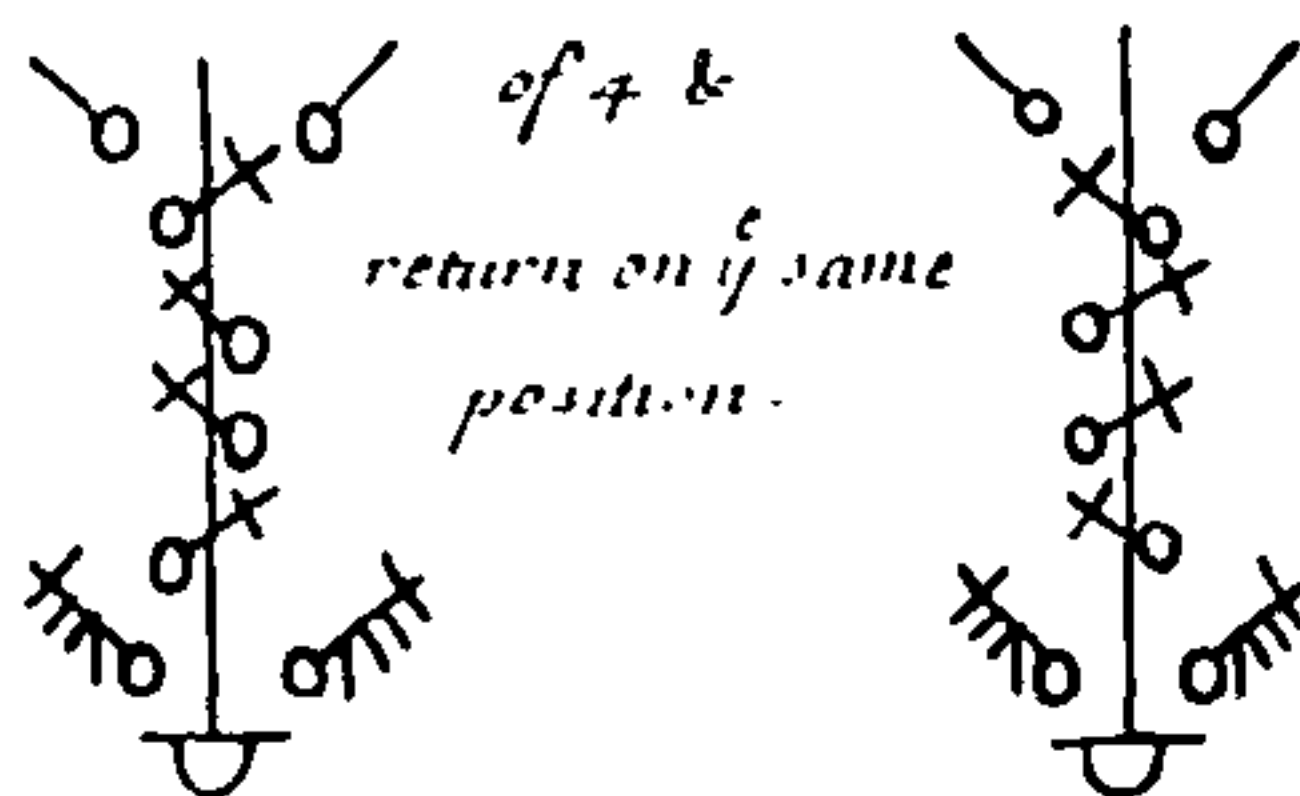 of 4 &
return on yᵉ same
position.